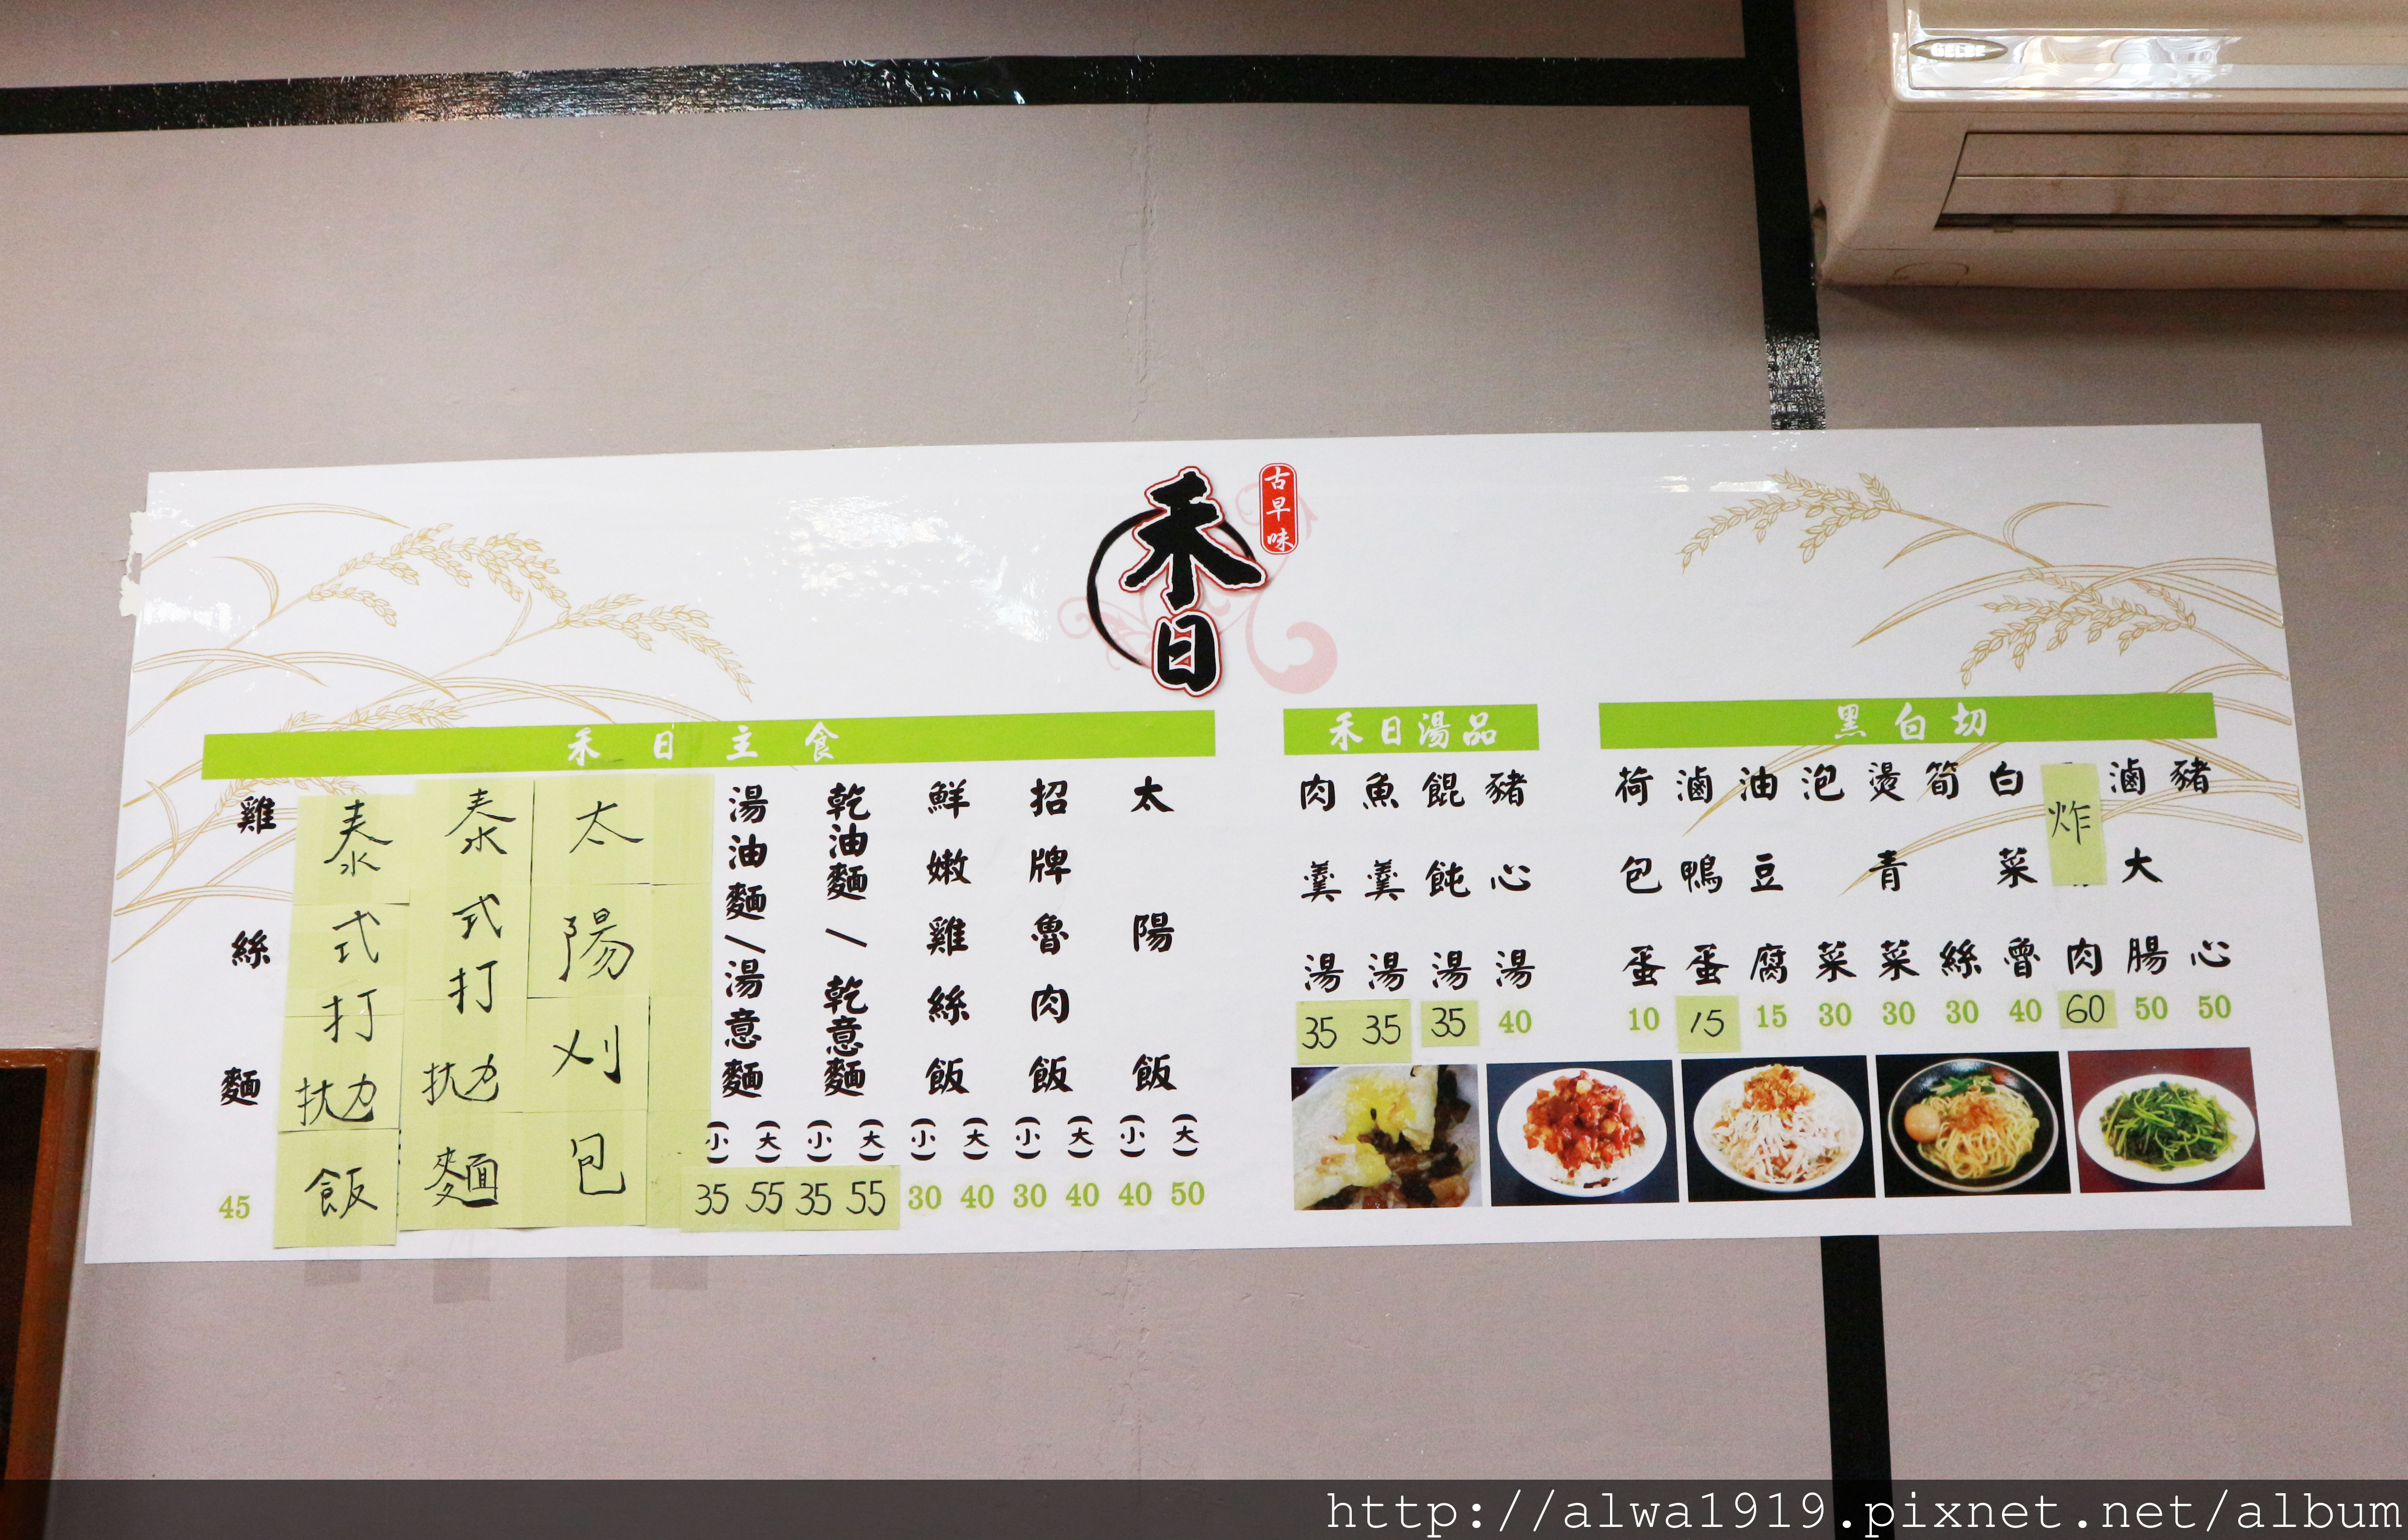 GELBE
古早味
禾日
禾日主食
太陽飯 (大) 50 (小) 40
招牌魯肉飯 (大) 40 (小) 30
鮮嫩雞絲飯 (大) 40 (小) 30
乾油麵/乾意麵 (大) 55 (小) 35
湯油麵/湯意麵 (大) 55 (小) 35
太陽刈包
泰式打拋麵
泰式打拋飯
雞絲麵 45
禾日湯品
豬心湯 40
餛飩湯 35
魚羹湯 35
肉羹湯 35
黑白切
豬心 50
滷大腸 50
炸肉 60
白菜魯 40
筍絲 30
燙青菜 30
泡菜 30
油豆腐 15
滷鴨蛋 15
荷包蛋 10
http://alwa1919.pixnet.net/album